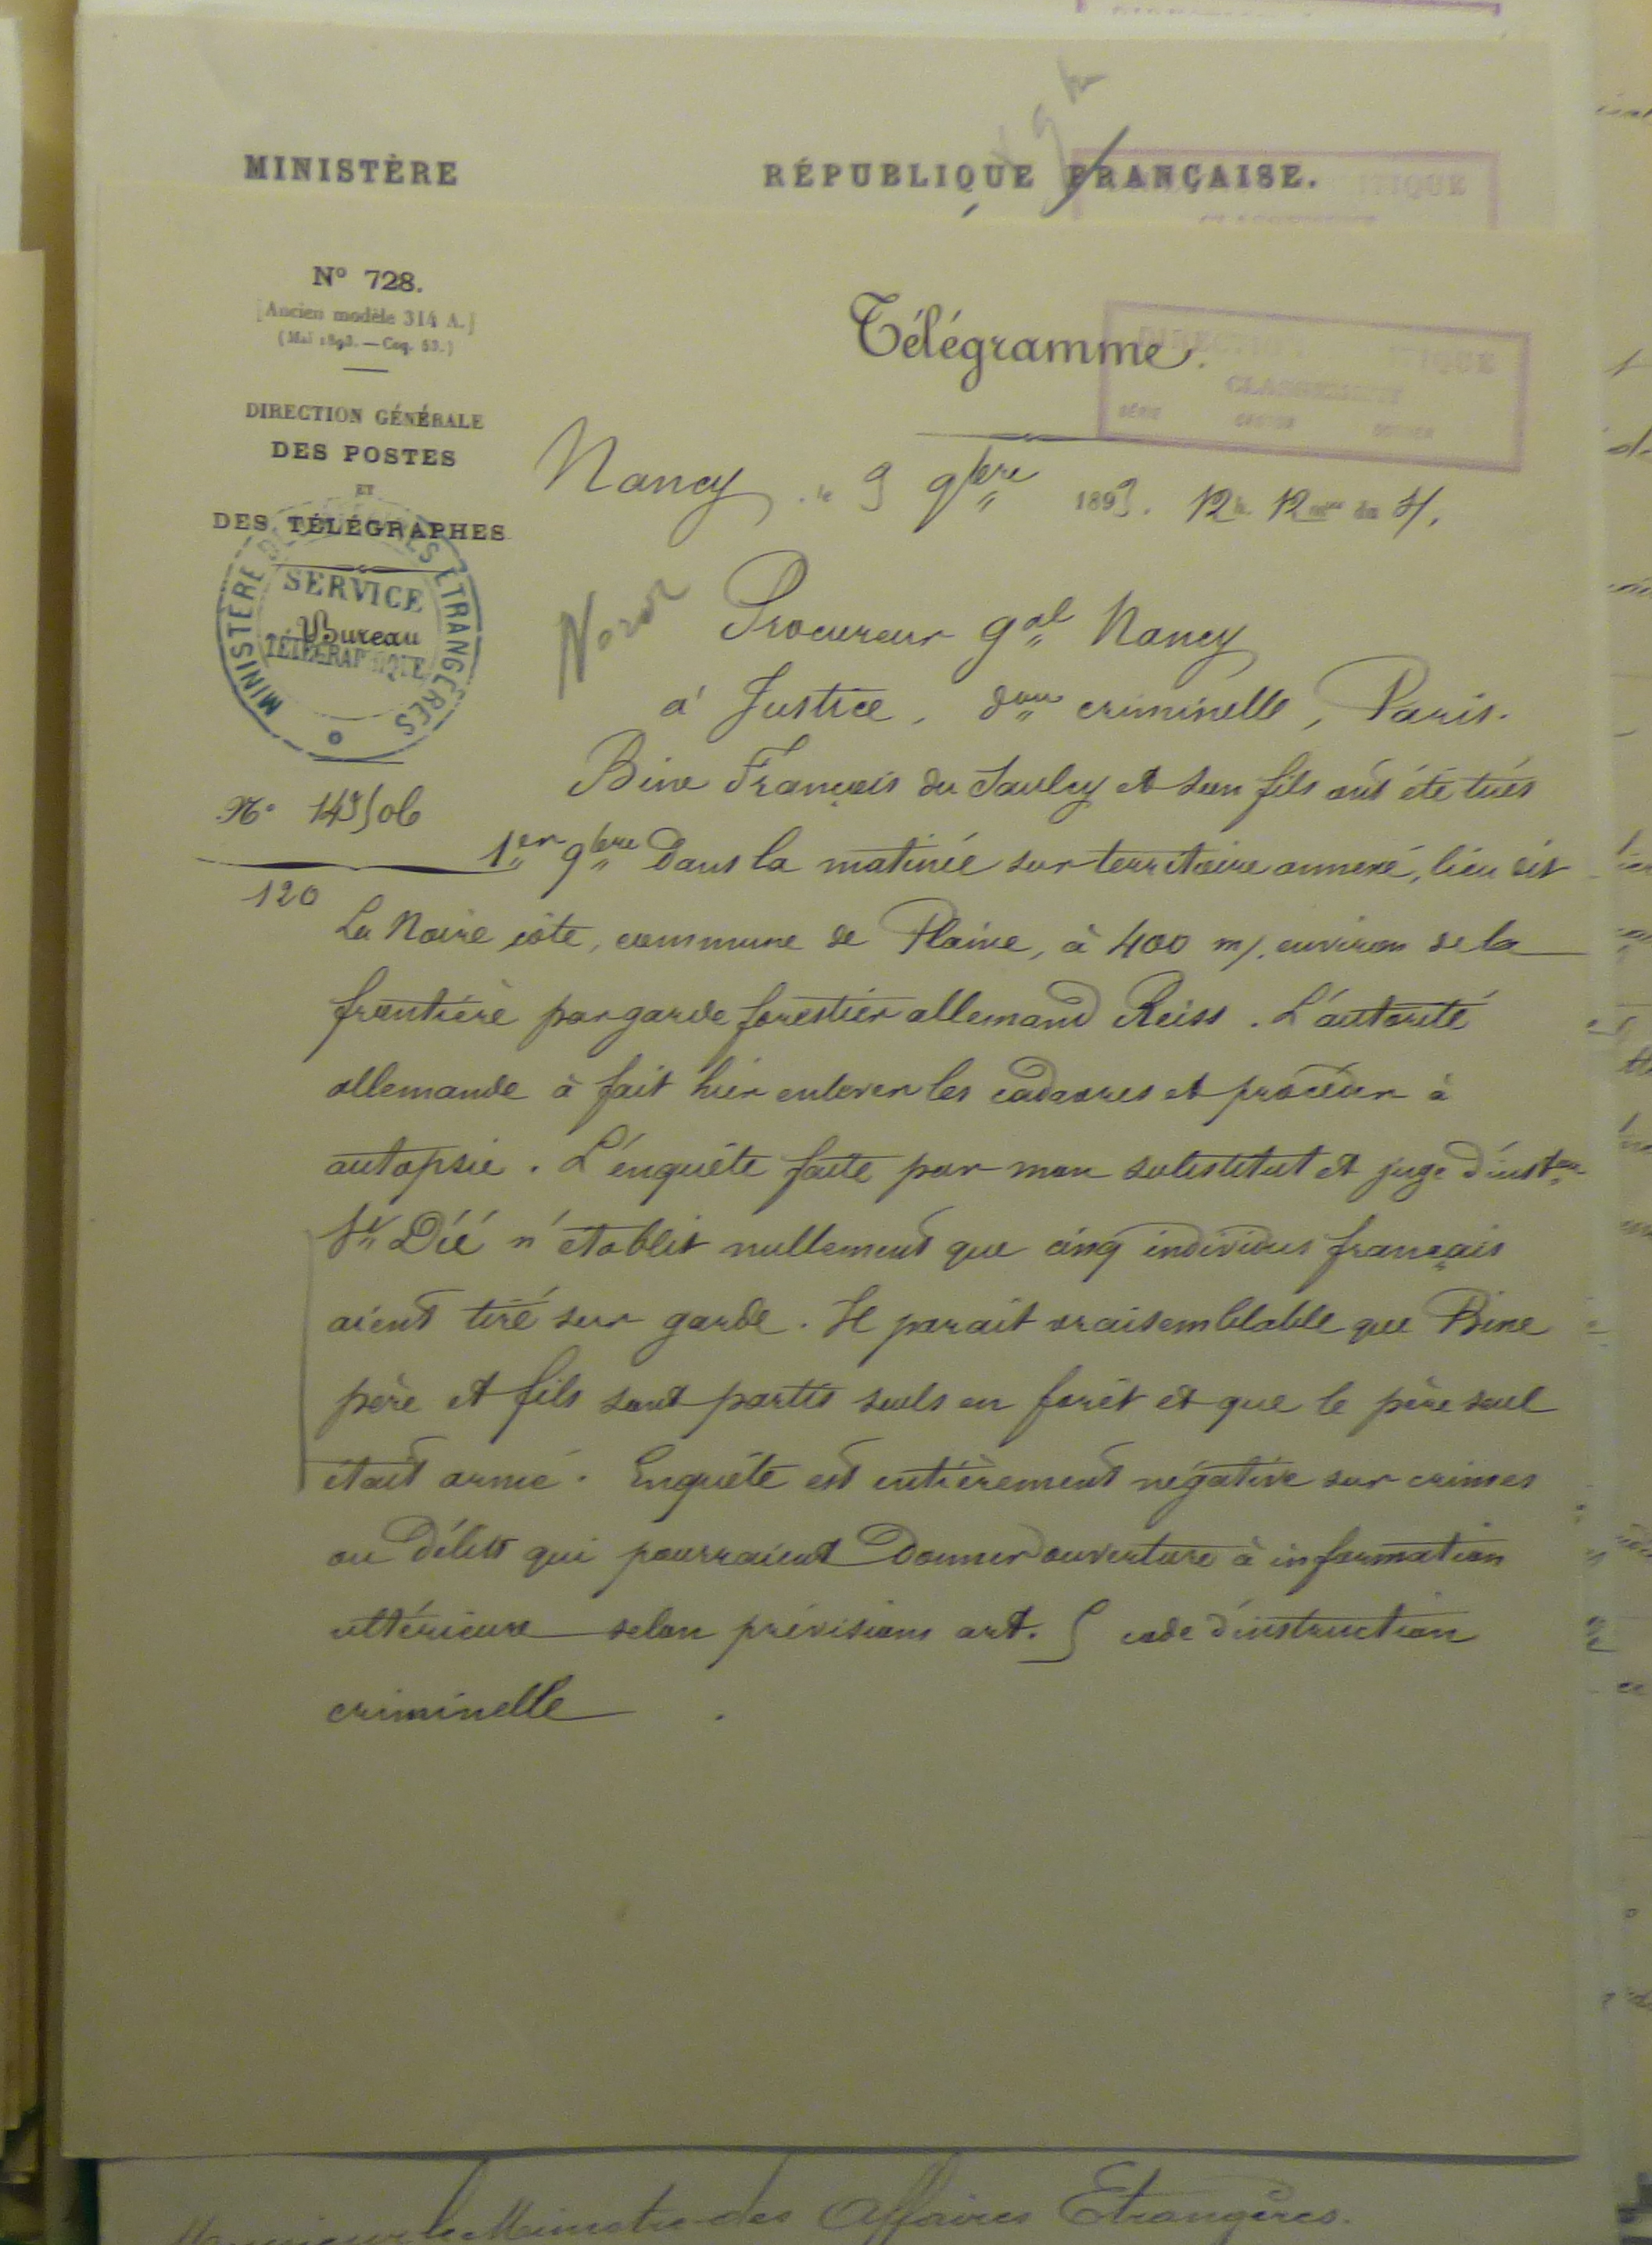 MINISTÈRE
RÉPUBLIQUE FRANÇAISE.
N° 728.
[Ancien modèle 314 A.]
(Mai 1893. — Coq. 53.)
DIRECTION GÉNÉRALE
DES POSTES
ET
DES TÉLÉGRAPHES
MINISTÈRE DES AFFAIRES ÉTRANGÈRES
SERVICE
Bureau
TÉLÉGRAPHIQUE
Télégramme.
DIRECTION POLITIQUE
CLASSEMENT
SÉRIE CARTON DOSSIER
Nancy, le 9 9bre 1893. 12h. 12 du
Procureur gal Nancy
à Justice, don criminelle, Paris.
N°
120
Bine François du Saulcy et son fils ont été tués
1er 9bre dans la matinée sur territoire annexé, lieu dit
La Noire côte, commune de Plaine, à 400 m/. environ de la
frontière par garde forestier allemand Reiss. L'autorité
allemande à fait hier enlever les cadavres et procéder à
autopsie. L'enquête faite par mon substitut et juge d'inston
St Dié n'établit nullement que cinq individus français
aient tiré sur garde. Il parait vraisemblable que Bine
père et fils sont partis seuls en forêt et que le père seul
était armé. Enquête est entièrement négative sur crimes
ou délits qui pourraient donner ouverture à information
ultérieure selon prévisions art. 5 code d'instruction
criminelle.
Monsieur le Ministre des Affaires Etrangères.